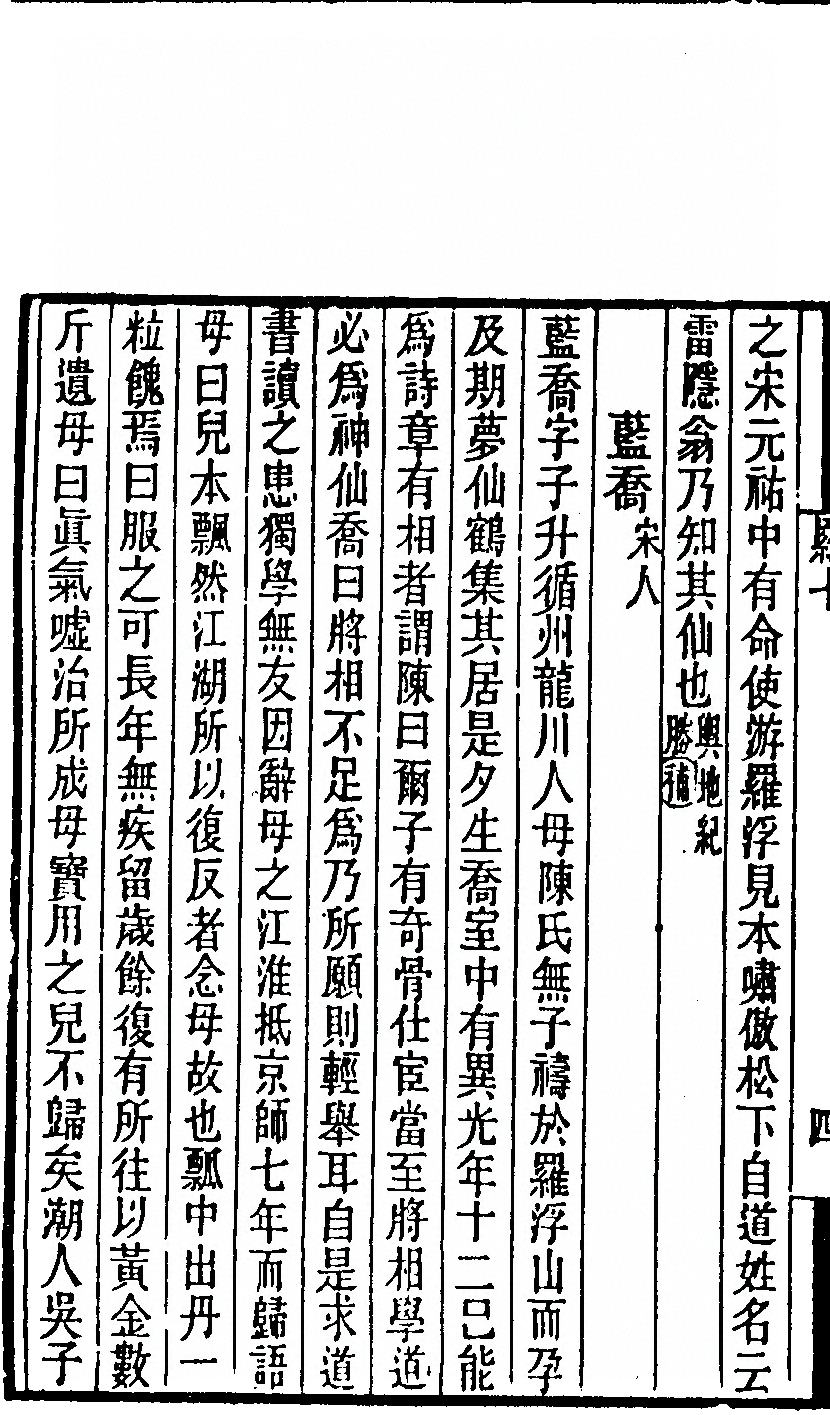 之宋元祐中有命使游羅浮見本嘯傲松下自道姓名云
雷隱翁乃知其仙也輿地紀勝補
藍喬宋人
藍喬字子升循州龍川人母陳氏無子禱於羅浮山而孕
及期夢仙鶴集其居是夕生喬室中有異光年十二已能
爲詩章有相者謂陳曰爾子有奇骨仕宦當至將相學道
必爲神仙喬曰將相不足爲乃所願則輕舉耳自是求道
書讀之患獨學無友因辭母之江淮抵京師七年而歸語
母曰兒本飄然江湖所以復反者念母故也瓢中出丹一
粒餽焉曰服之可長年無疾留歲餘復有所往以黃金數
斤遺母曰眞氣噓治所成母寶用之兒不歸矣潮人吳子
四